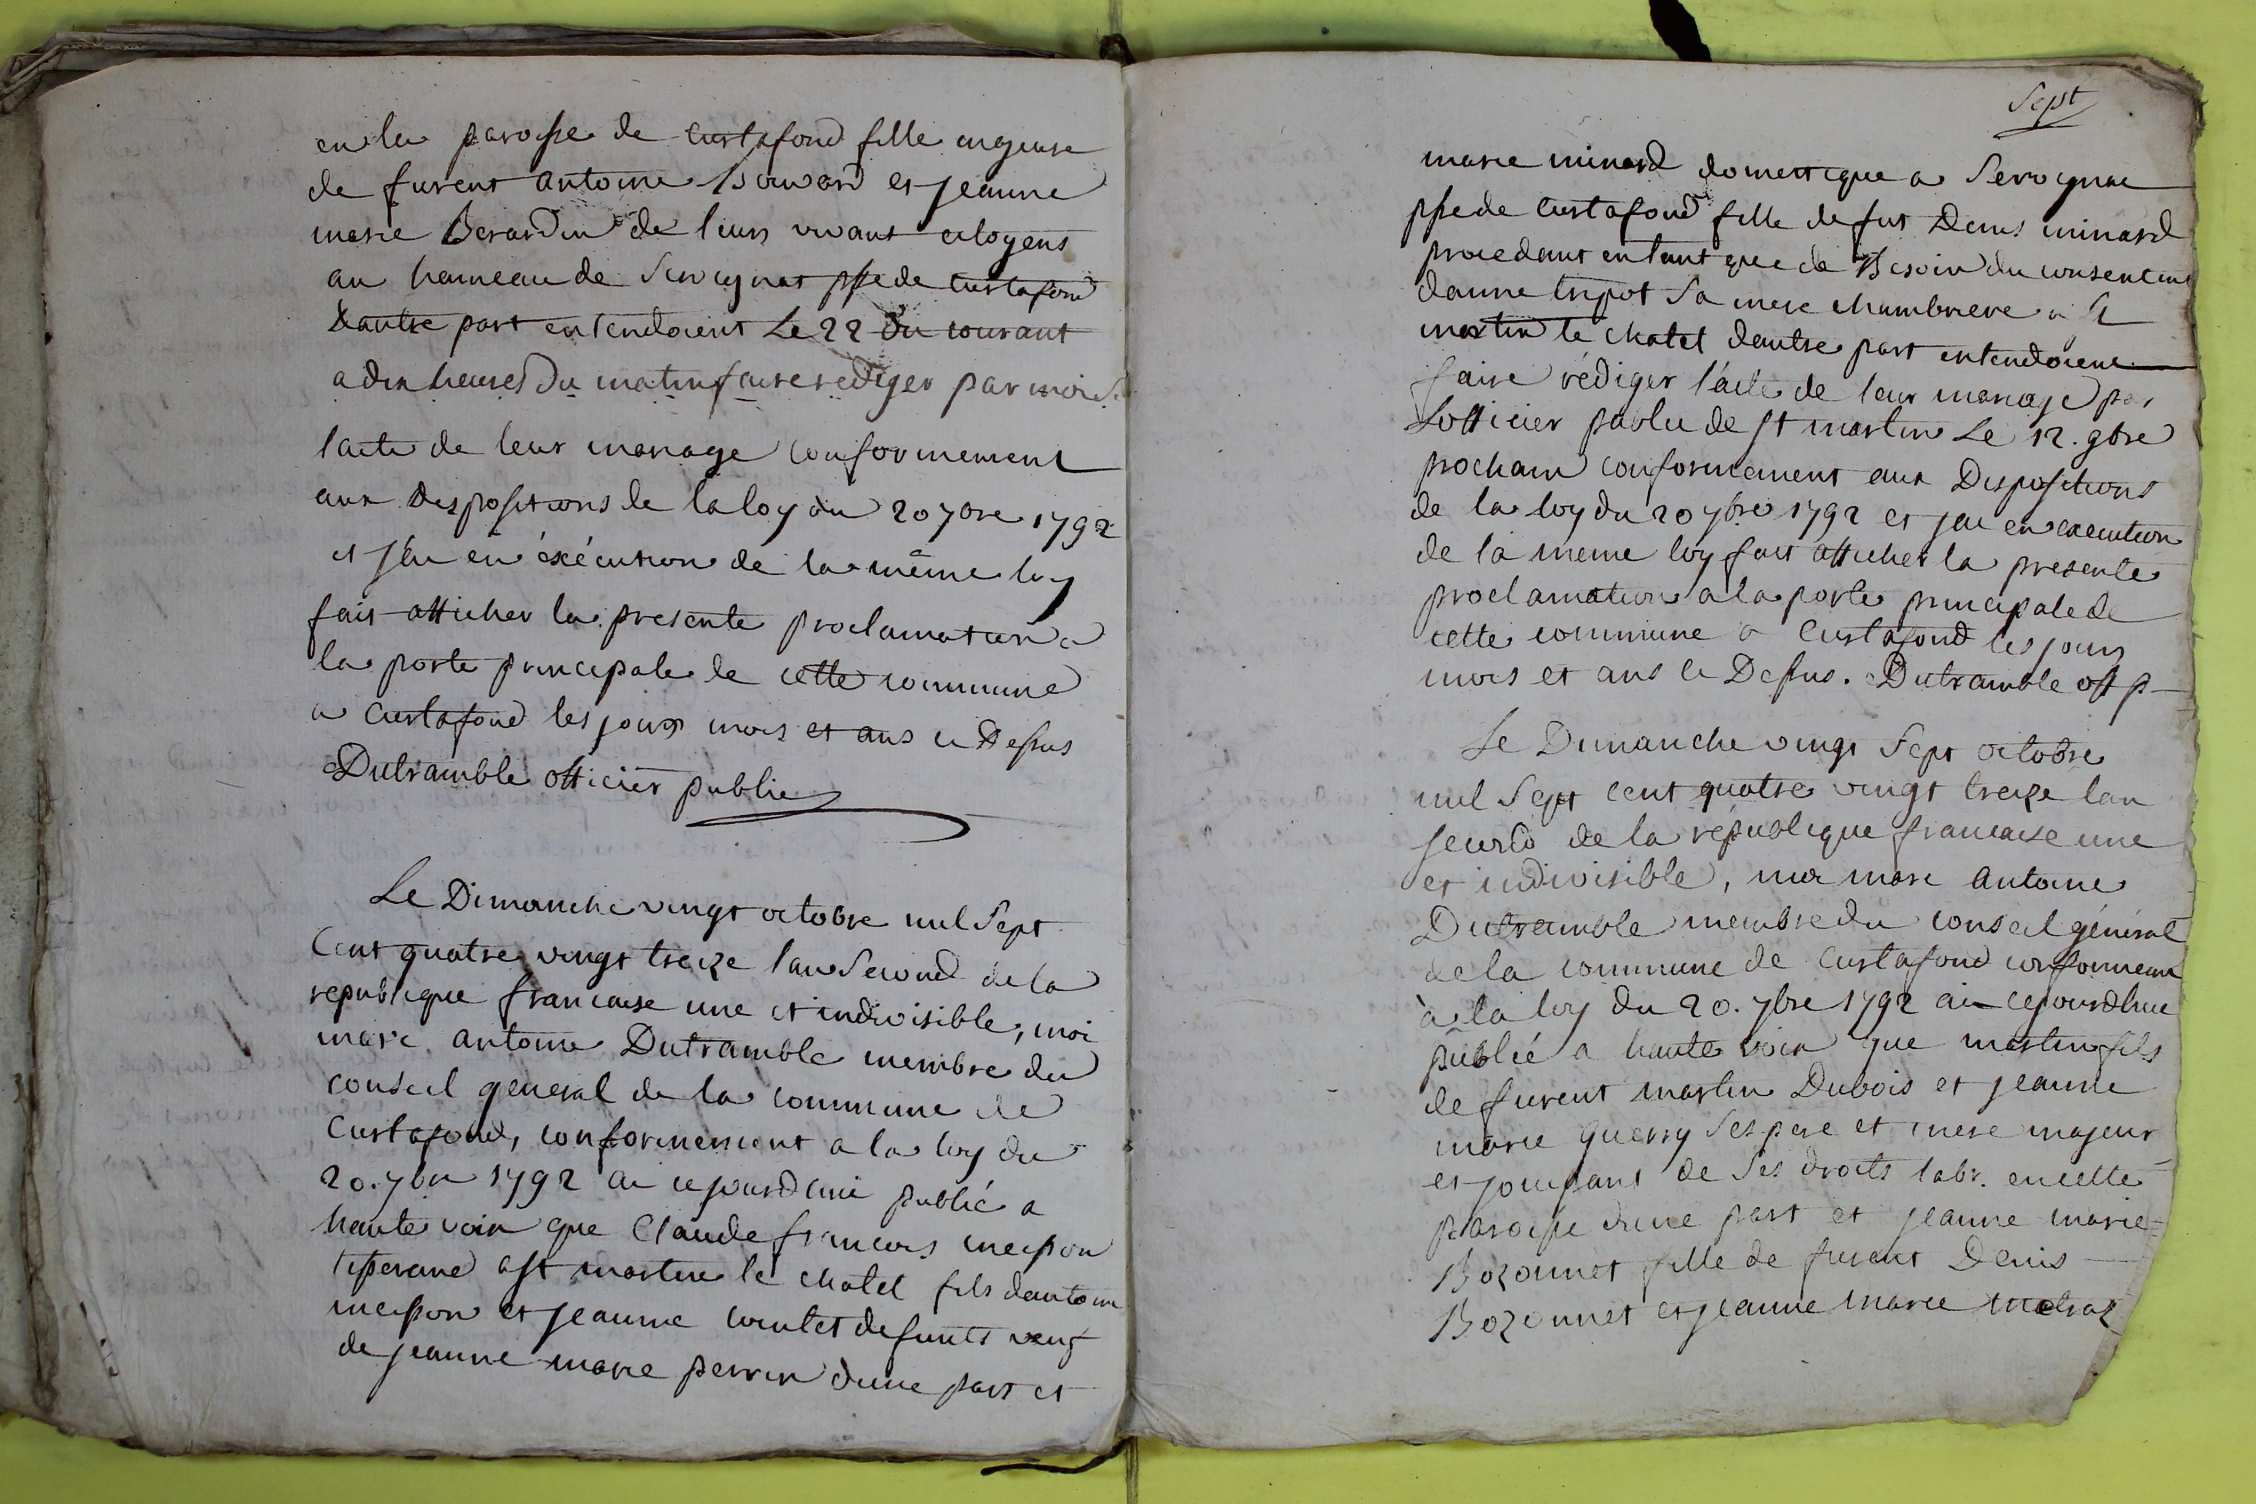 en la paroisse de Curtafond fille majeure
de furent antoine Bouvard et jeanne
marie Berardin de leurs vivant citoyens
au hameau de Servignat psse de Curtafond
Dautre part entendoient Le 22 du courant
a dix heures du matin faire rediger par moi
lacte de leur mariage conformement
aux Dispositions de la loy du 20 7bre 1792
et jai en éxécution de la même loy
fait afficher la presente proclamation a
la porte principale de cette commune
a Curtafond les jours mois et ans ci Dessus
Dutramble officier public
Le Dimanche vingt octobre mil Sept
Cent quatre vingt treize lan Second de la
republique francaise une et indivisible, moi
marc antoine Dutramble membre du
conseil general de la commune de
Curtafond, conformement a la loy du
20. 7bre 1792 ai cejourdhui publié a
haute voix que Claude francois
tisserand a St martin le chatel fils dantoine
et jeanne defunts veuf
de jeanne marie perrin dune part et
Sept
marie minard domestique a Servignat
psse de Curtafond fille de fut Denis minard
procedant en tant que de Besoin du consentem
danne tripot Sa mere chambriere a St
martin le chatel dautre part entendoient
faire rédiger l'acte de leur mariage par
Lofficier public de St martin Le 12. 9bre
prochain conformement aux Dispositions
de la loy du 20 7bre 1792 et jai en execution
de la meme loy fait afficher la presente
proclamation a la porte principale de
cette commune a Curtafond les jours
mois et ans ci Dessus. Dutramble off p
Le Dimanche vingt Sept octobre
mil Sept cent quatre vingt treize lan
Second de la république francaise une
et indivisible, moi marc antoine
Dutramble membre du conseil général
de la commune de Curtafond conformement
à la loy du 20. 7bre 1792 ai cejourdhui
publié a haute voix que martin fils
de furent martin Dubois et jeanne
marie querry Ses pere et mere majeur
et jouissant de Ses droits labr. en cette
paroisse dune part et jeanne marie
Bozonnet fille de furent Denis
Bozonnet et jeanne marie